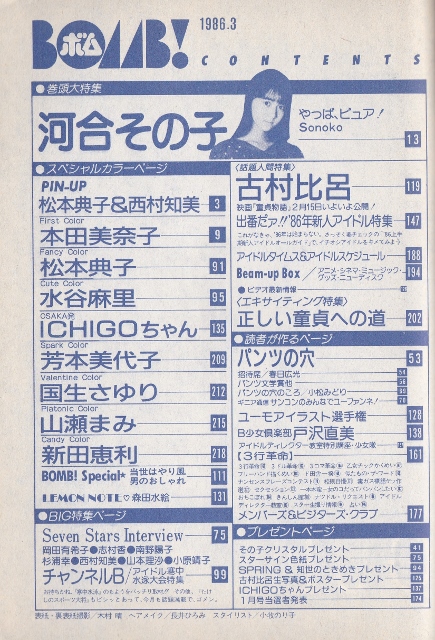 BOMB!
ボム
1986.3
CONTENTS
●巻頭大特集
河合その子
やっぱ、ピュア!
Sonoko
13
●スペシャルカラーページ
PIN-UP
松本典子&西村知美
3
First Color
本田美奈子
9
Fancy Color
松本典子
91
Cute Color
水谷麻里
95
OSAKA発
ICHIGOちゃん
135
Spark Color
芳本美代子
209
Valentine Color
国生さゆり
212
Platonic Color
山瀬まみ
215
Candy Color
新田恵利
218
BOMB! Special★
当世はやり風
男のおしゃれ
111
LEMON NOTE♡森田水絵
131
●BIG特集ページ
Seven Stars Interview
75
岡田有希子●志村香●南野陽子
杉浦幸●西村知美●山本理沙●小原靖子
チャンネルB
アイドル寒中
水泳大会特集
99
〈話題人間特集〉
古村比呂
119
映画「童貞物語」2月15日いよいよ公開!
出番だァ!!'86年新人アイドル特集
147
アイドルタイムス&アイドルスケジュール
188
Beam-up Box
アニメ・シネマ・ミュージック・
グッズ・ニューディスク
194
●ビデオ最新情報
〈エキサイティング特集〉
正しい童貞への道
202
●読者が作るページ
パンツの穴
53
招待席/春日広光
パンツ文学賞他
パンツの穴のころ/小松みどり
サンコンのみんなでユーファンキネ!
ユーモアイラスト選手権
128
B少女倶楽部 戸沢直美
138
アイドルディレクター教室特別講座・少女隊
【3行革命】
161
メンバーズ&ビジターズ・クラブ
177
●プレゼントページ
その子クリスタルプレゼント
41
スターサイン色紙プレゼント
75
SPRING & 知世のときめきプレゼント
古村比呂生写真&ポスタープレゼント
ICHIGOちゃんプレゼント
1月号当選者発表
174
表紙・裏表紙撮影/木村晴 ヘアメイク/長井ひろみ スタイリスト/小夜のり子